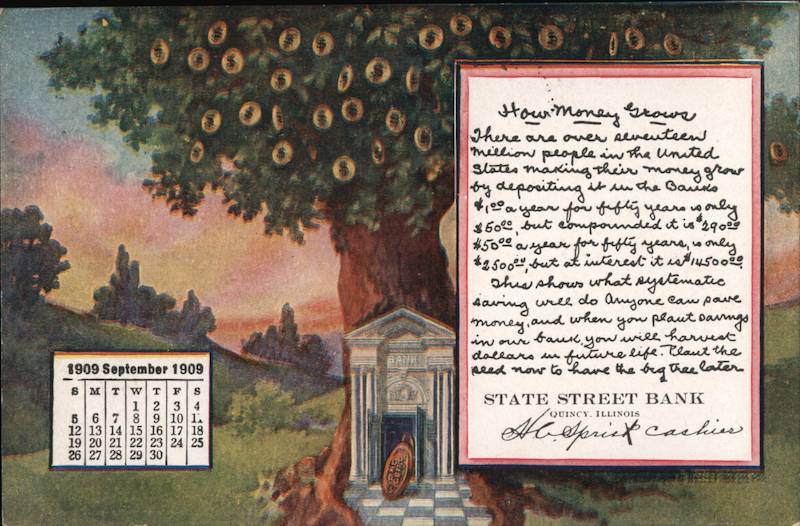 How Money Grows
There are over seventeen
million people in the United
States making their money grow
by depositing it in the Banks
$1.00 a year for fifty years is only
$50.00, but compounded it is $290.00
$50.00 a year for fifty years, is only
$2500.00, but at interest it is $14500.00.
This shows what systematic
saving will do Anyone can save
money, and when you plant savings
in our bank, you will harvest
dollars in future life. Plant the
seed now to have the big tree later
STATE STREET BANK
QUINCY, ILLINOIS
cashier
BANK
1909 September 1909
S M T W T F S
1 2 3 4
5 6 7 8 9 10 11
12 13 14 15 16 17 18
19 20 21 22 23 24 25
26 27 28 29 30
ONE CENT